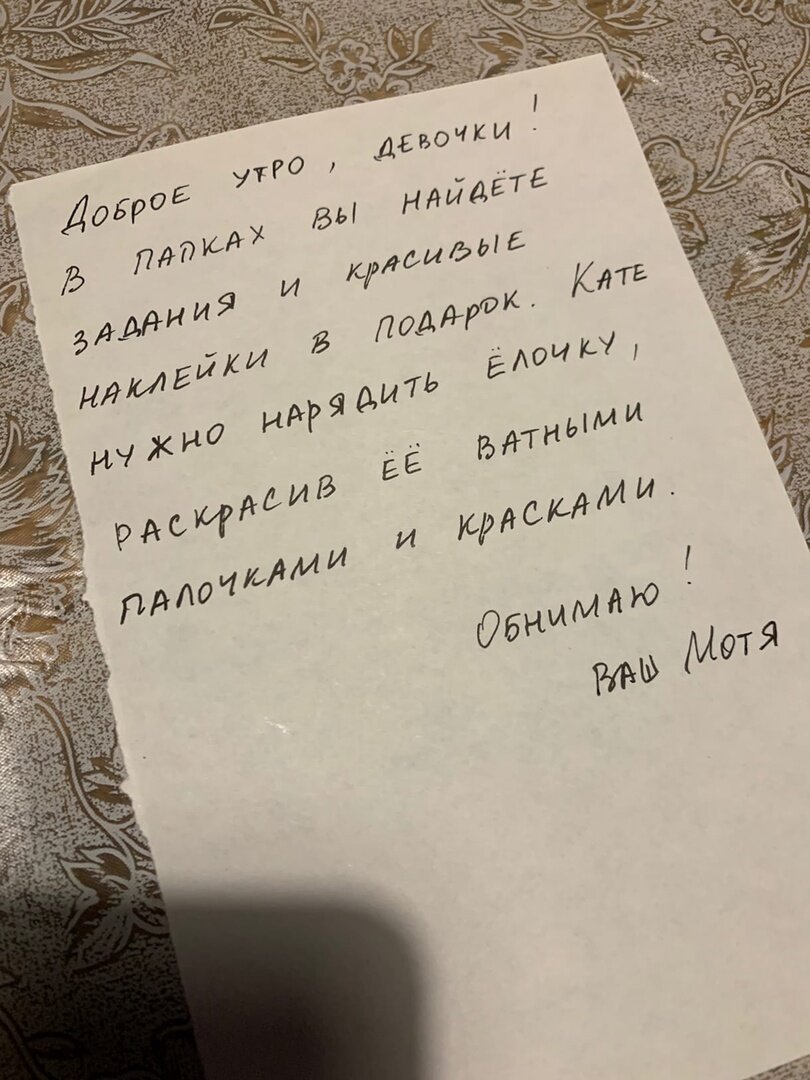 Доброе утро, девочки!
В папках вы найдёте
задания и красивые
наклейки в подарок. Кате
нужно нарядить ёлочку,
раскрасив её ватными
палочками и красками.
Обнимаю!
Ваш Мотя